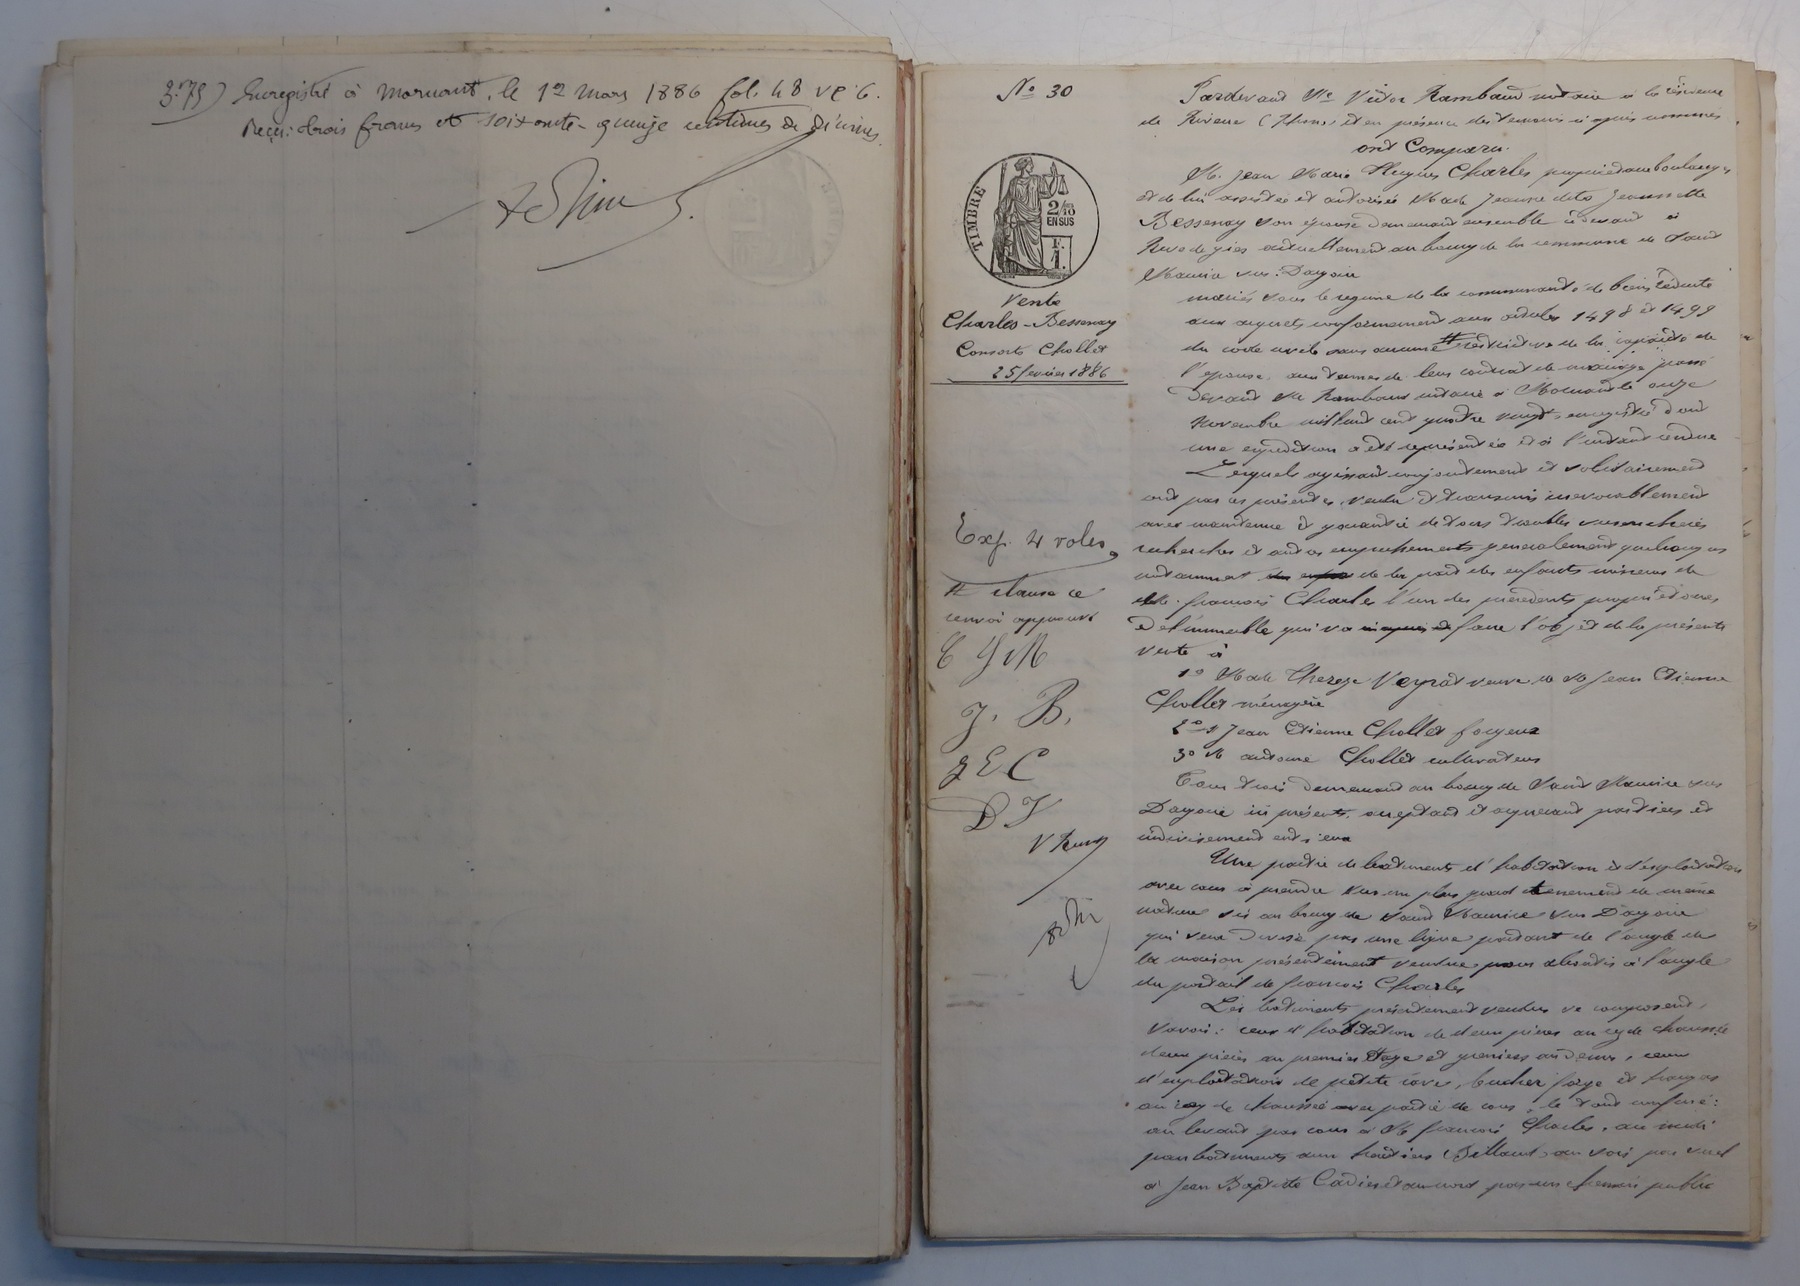 3.75) Enregistré à Mornant, le 1er Mars 1886 fol. 48 Vº c. 6.
Reçu: trois francs et soixante-quinze centimes de décimes.
Nº 30
TIMBRE
2/10
EN SUS
F.
1.
Vente
Charles - Bessenay
Consorts Chollet
25 fevrier 1886
Exp. 4 roles
# clause ce
renvoi approuvé
C J M
J. B.
J E C
D V
Pardevant Me Victor Rambaud notaire à la résidence
de Riverie (Rhône) et en présence des témoins ci après nommés,
ont Comparu.
M. Jean Marie Hugues Charles propriétaire boulanger
et de lui assistée et autorisée Made Jeanne dite Jeannette
Bessenay son épouse demeurant ensemble ci devant à
Rive de gier actuellement au bourg de la commune de Saint
Maurice sur Dargoire
mariés sous le regime de la communauté de biens réduite
aux acquets conformement aux articles 1498 et 1499
du code civil sans aucune # restrictive de la capacité de
l'épouse, aux termes de leur contrat de mariage passé
devant Me Rambaud notaire à Mornant le onze
Novembre mil huit cent quatre vingt, enregistré dont
une expédition a été représentée et à l'instant rendue
Lesquels agissant conjointement et solidairement
ont par ces présentes, vendu et transmis irrevocablement
avec maintenue et garantie de tous troubles surencheres
recherches et autres empechements generalement quelconques
notamment de la part des enfants mineurs de
françois Charles l'un des precedents proprietaires
de l'immeuble qui va faire l'objet de la présente
vente à
1º Made Thereze Veyrat veuve de M Jean Etienne
Chollet ménagère
2º M Jean Etienne Chollet forgeur
3º M antoine Chollet cultivateur
Tous trois demeurant au bourg de Saint Maurice sur
Dargoire ici présents, acceptant et acquerant par tiers et
indivisement entre eux
Une partie de batiments d'habitation et d'exploitation
avec cour à prendre sur un plus grand tenement de même
nature sis au bourg de Saint Maurice sur Dargoire
qui sera divisé par une ligne partant de l'angle de
la maison présentement vendue pour aboutir à l'angle
du portail de françois Charles
Les batiments présentement vendus se composent,
savoir: ceux d'habitation de deux pièces au rez de chaussée
deux pièces au premier etage et greniers au dessus, ceux
d'exploitation de petite cave, bucher forge et hangar
au rez de chaussée avec partie de cour, le tout confiné:
au levant par cour à M françois Charles, au midi
par batiments aux héritiers Billaud, au soir par
à Jean Baptiste Cadier et au nord par un chemin public